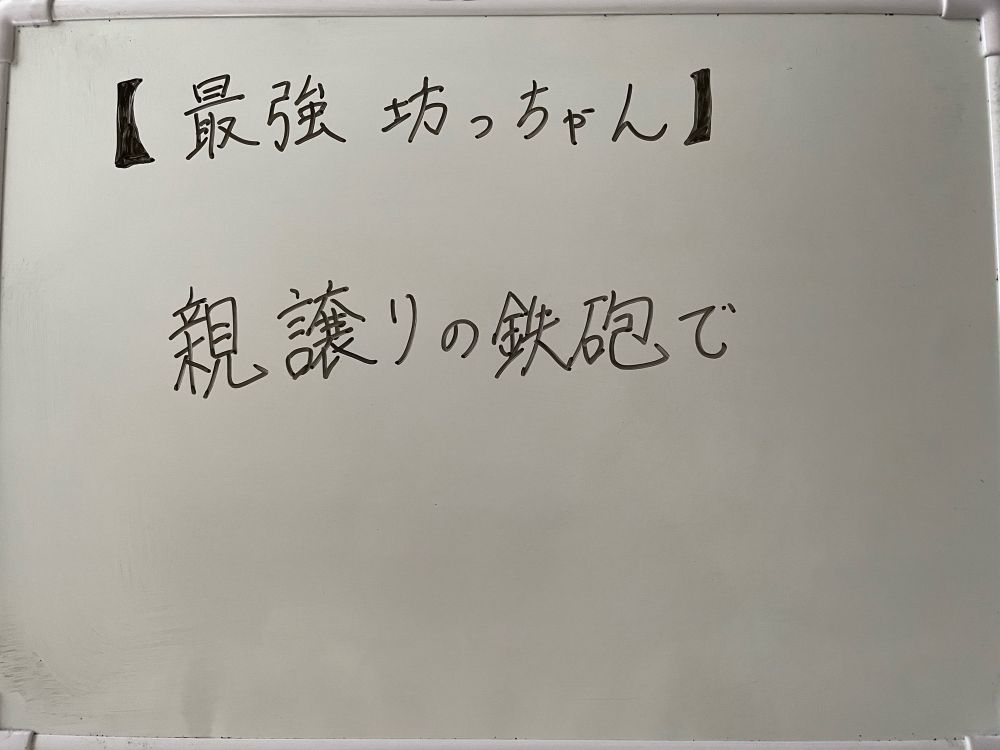 【最強 坊っちゃん】
親譲りの鉄砲で